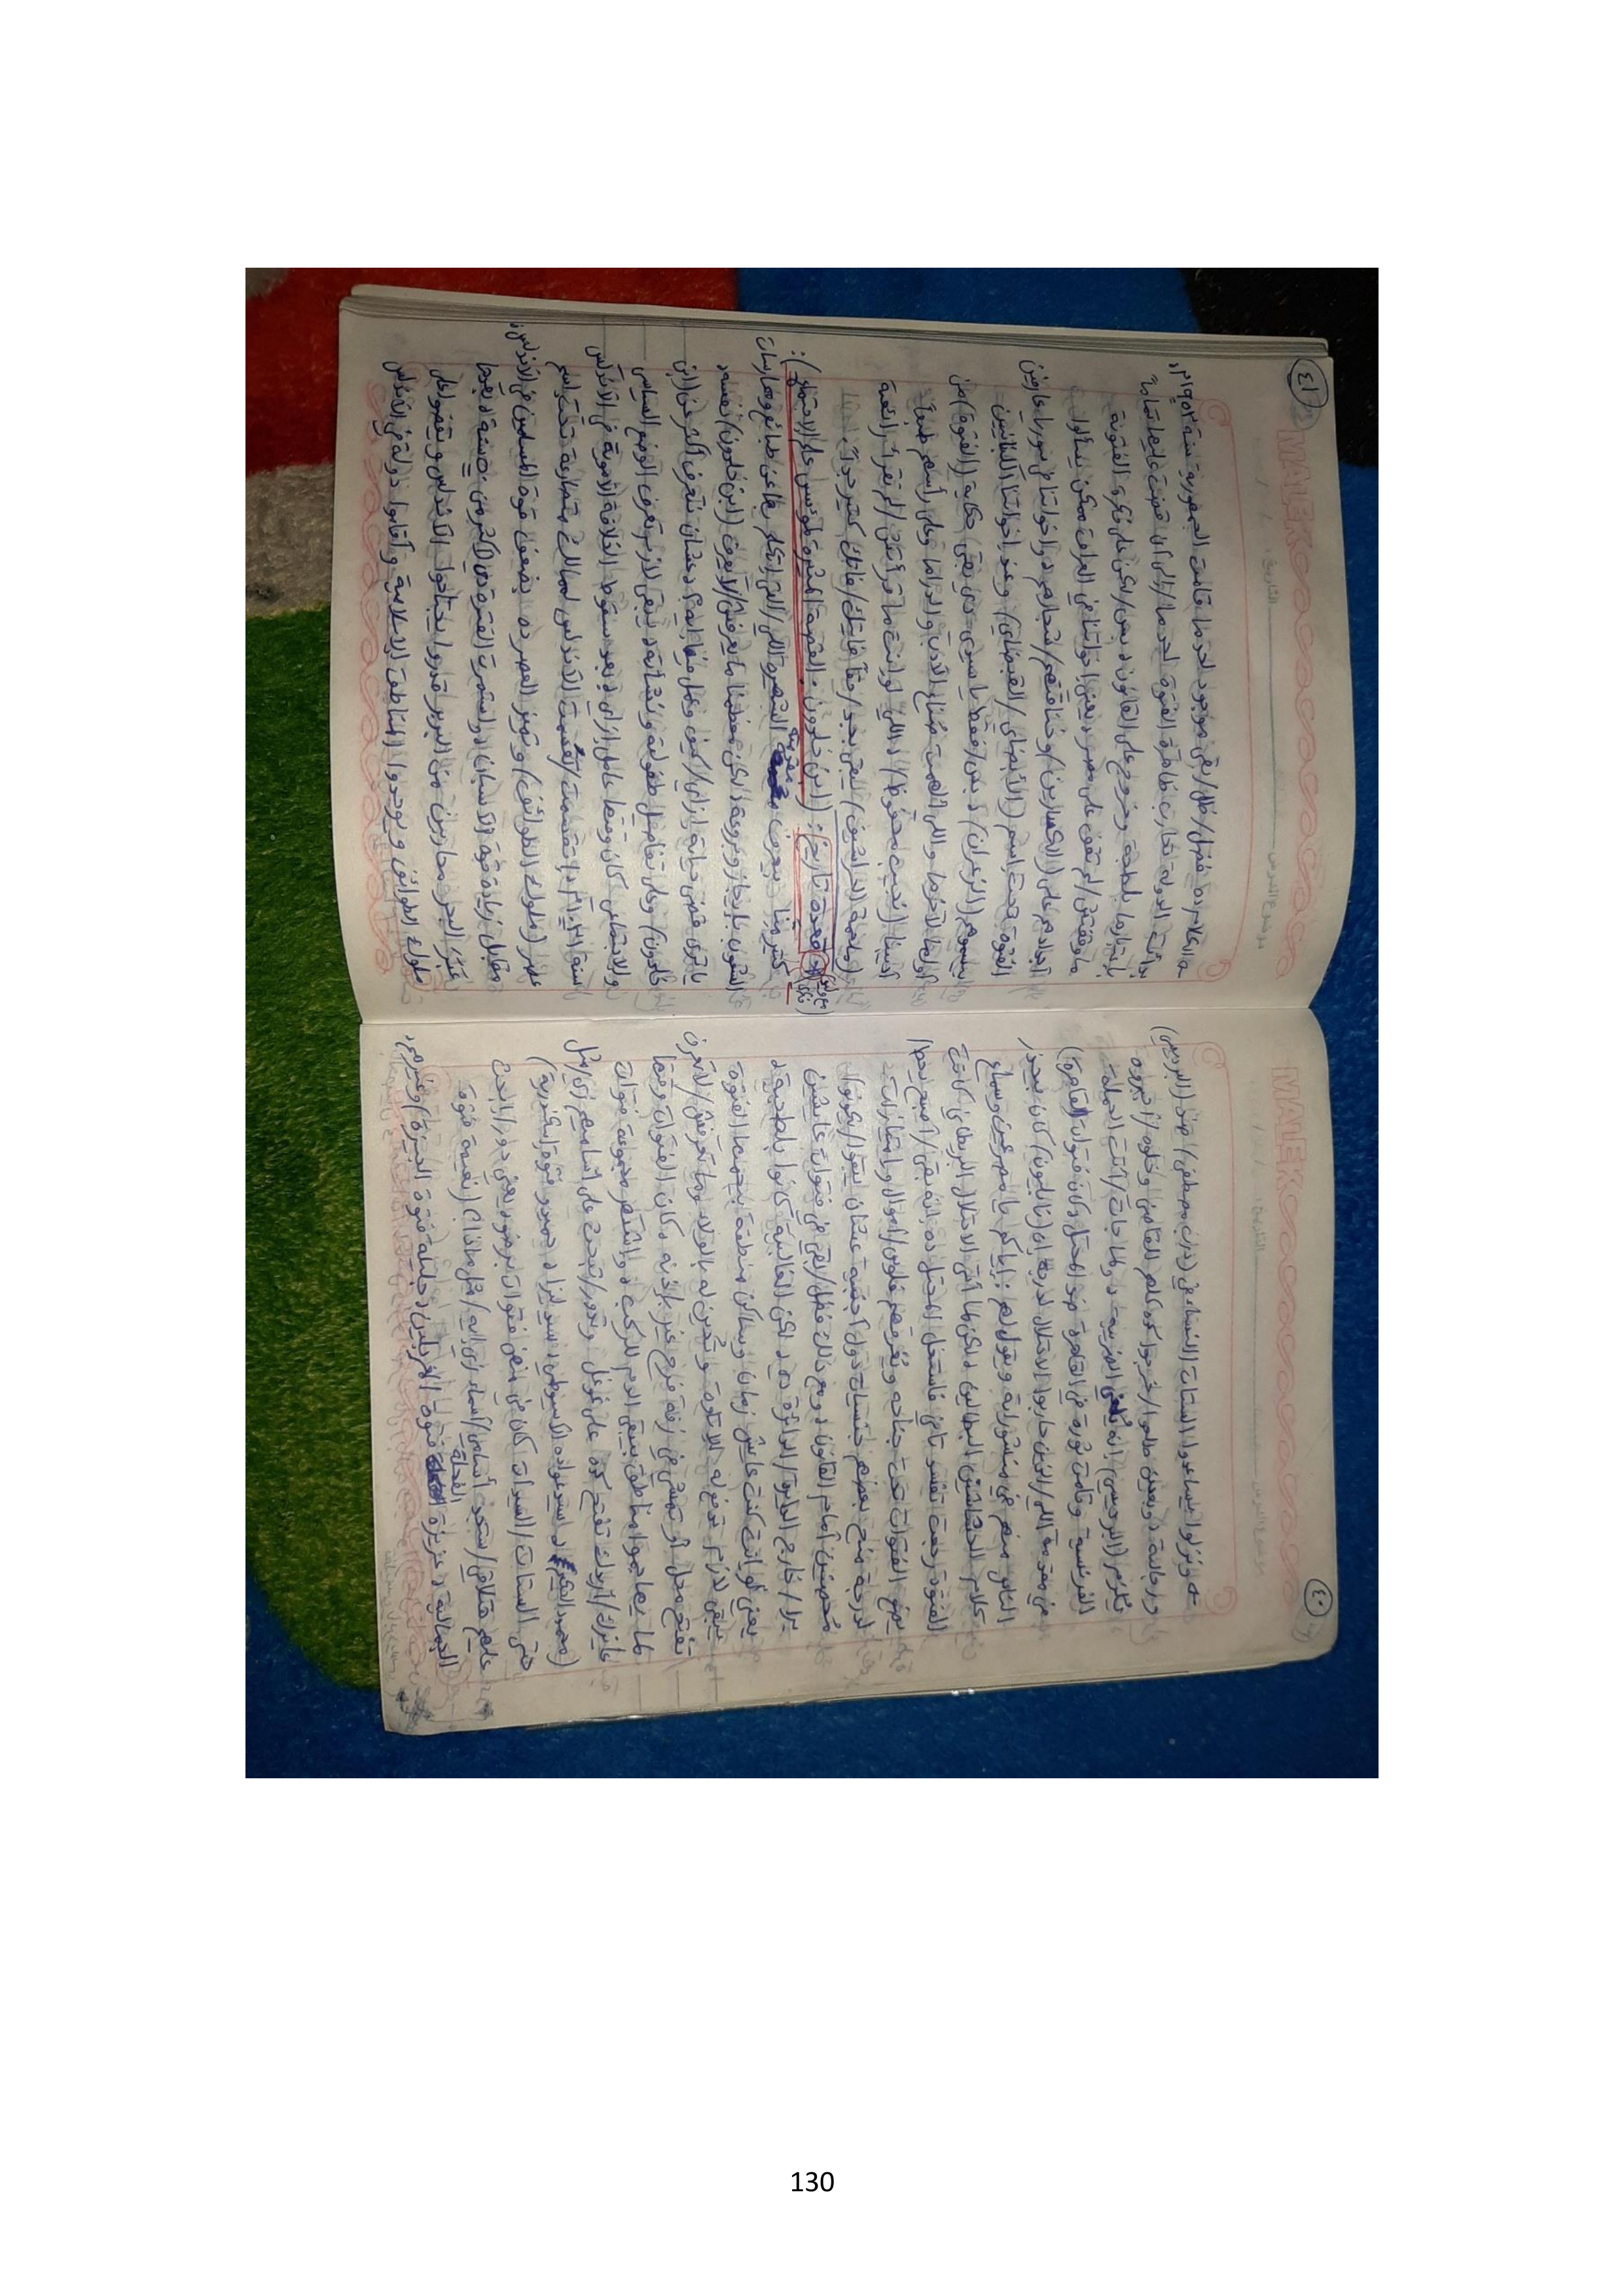 MALEKO
التاريخ:
موضوع الدرس
٤٠
ونزلوا يساعدوا الستات الغسالة في (درب مصطفى) ضد (البرديسي)
ورجالته، وبعدين طلعوا/خرجوا كده كلهم للقاضي وخلوه/أجبروه
يُلزم (البرديسي) إنه يُلغي الضريبة، ولما جات/أتت الحملة
الفرنسية وقامت ثورة في القاهرة ضد المحتل وكان فتوات (القاهرة)
في مقدمة اللي/الذين حاربوا الاحتلال لدرجة إن (نابليون) كان بيحذر
الناس منهم في منشوراته ويقول لهم: إياكم يا مصريين وسماع
كلام الحشاشين البطالين، لكن لما أتى الاحتلال البريطاني كانت
الفتونة رجعت تفسد تاني فاستغل المحتل ده إنه بقى/أصبح يحط/
يضع الفتوات تحت جناحه ويُغرقهم فلوس/أموال وامتيازات
لدرجة منح بعضهم جنسيات دول أجنبية عشان يبقوا/يكونوا
مُحصنين أمام القانون، ومع ذلك فضل/بقي في فتوات عايشين
برا/خارج الدايرة/الدائرة دي، لكن الغالبية كانوا بلطجية،
يعني لو أنت كنت عايش زمان وساكن منطقة بيحكمها الفتوة
يبقى لازم تدفع له الإتاوة وتُدين له بالولاء وما تعرفش/لا تعرف
تفتح محل أو تمشي في زفة فرح غير بإذنه، وكان الفتوات وقتها
لما يهاجموا مناطق بيبقى الدم للركب، واشتهر مجموعة فتوات
عايزك/أريدك تفتح كده على جوجل وتدور/تبحث على أساميهم زي/مثل
(محمود الحكيم، سيد عوادة الأسيوطي، سيد لبزاد، حميدو فتوة إسكندرية)
حتى الستات/السيدات كان في منهم فتوات برضو، يعني دور/ابحث
عليهم هتلاقي/ستجد أسامي/أسماء زي إيه/مثل ماذا؟ (نعيمة فتوة
الجمالية، عزيزة الفحلة فتوة المغربلين، جليلة فتوة الجيزة) وغيرهم،
MALEKO
التاريخ:
موضوع الدرس
٤١
الكلام ده فضل/ظل/بقي موجود لحد ما قامت الجمهورية سنة ١٩٥٣م،
بدأت الدولة تحارب ظاهرة الفتوة لحد ما/إلى أن قضت عليها تماماً
باعتبارها بلطجة وخروج على القانون، بس/لكن على فكرة الفتونة
ما وقفتش/لم تقف على مصر، يعني إخواتنا في العراق ممكن يسألوا
أجدادهم على (الكسارين)/وخناقتهم/شجارهم، وإخواتنا في سوريا عارفين
الفتوة تحت اسم (الأبضاي/القبضاي)، وعند إخواتنا اللبنانيين
بيسموهم (الزعران)، بس/فقط يا سيدي دي بقى حكاية (الفتوة) من
أولها لآخرها واللي ألهمت صُناع الأدب والدراما وعلى رأسهم طبعاً
أديبنا (نجيب محفوظ)، اللي لو أنت ما قرأتش/لم تقرأ رائعته
(ملحمة الحرافيش) يبقى بجد/حقاً فايتك/فاتك كتير جداً.
(من قناة) (الـ) قعدة تاريخ: (ابن خلدون: القصة المثيرة لمؤسس علم الاجتماع):
كتير منا بيعرف مقدمته الشهيرة اللي/التي اتكلم بها عن طبائع وممارسات
الشعوب بإيجاز وبروعة، لكن معظمنا ما يعرفش/لا يعرف (ابن خلدون) نفسه،
يا ترى قضى حياته إزاي/كيف وعمل فيها إيه؟، عشان نتعرف أكتر عن (ابن
خلدون) وعلى تفاصيل طفولته ونشأته، يبقى لازم نعرف الوضع السياسي
والاجتماعي كان وقتها عامل إزاي، بعد سقوط الخلافة الأموية في الأندلس
سنة ١٠٣١م، اتقسمت/تقسمت الأندلس لممالك متصارعة تحت اسم
عصر (ملوك الطوائف) وتميز العصر ده بضعف قوة المسلمين في الأندلس
مقابل زيادة قوة الأسبان، واستمرت الفترة دي لأكتر من ٥٠ سنة، بعدها
عَبَر البحر محاربين من البربر قدروا يجتاحوا الأندلس ويقضوا على
ملوك الطوائف ويوحدوا المناطق الإسلامية وأقاموا دولة في الأندلس
130